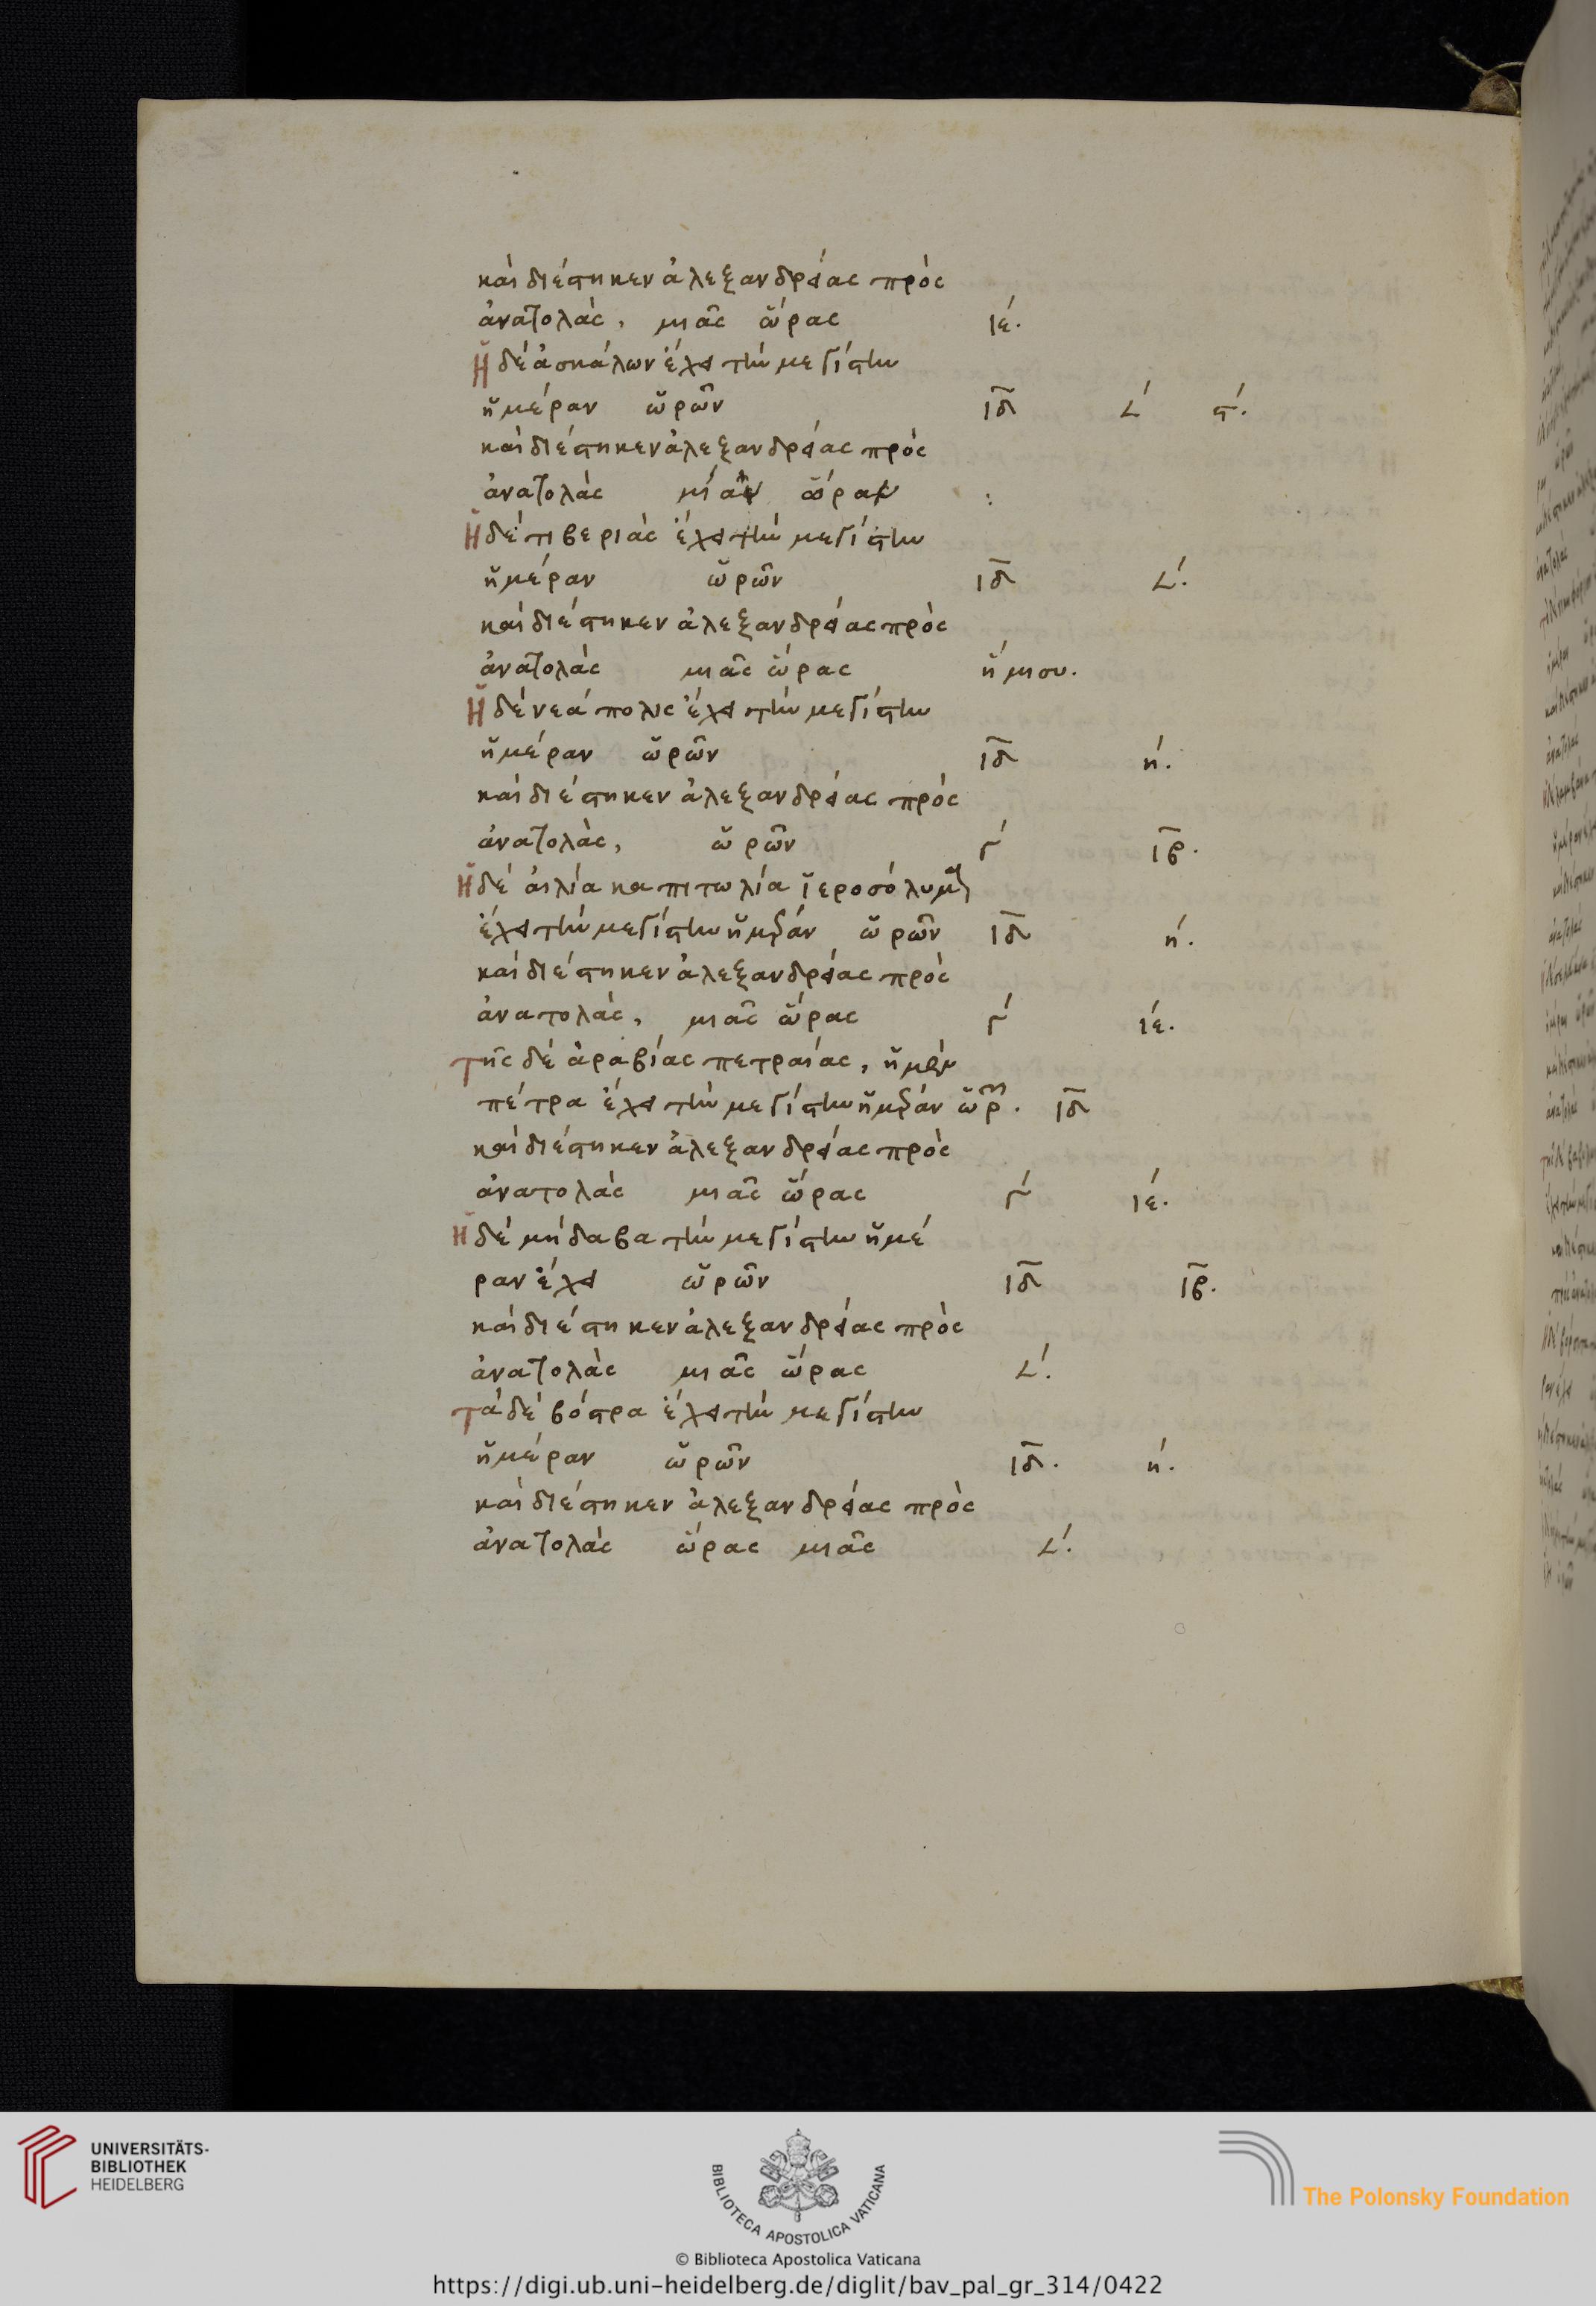 καὶ διέστηκεν ἀλεξανδρείας πρὸς
ἀνατολὰς, μιᾶς ὥρας ιε΄.
Ἡ δὲ ἀσκάλων ἔχει τὴν μεγίστην
ἡμέραν ὡρῶν ιδ 𐅵΄ ϛ΄.
καὶ διέστηκεν ἀλεξανδρείας πρὸς
ἀνατολὰς :
Ἡ δὲ τιβεριὰς ἔχει τὴν μεγίστην
ἡμέραν ὡρῶν ιδ 𐅵΄.
καὶ διέστηκεν ἀλεξανδρείας πρὸς
ἀνατολὰς μιᾶς ὥρας ἥμισυ.
Ἡ δὲ νεάπολις ἔχει τὴν μεγίστην
ἡμέραν ὡρῶν ιδ η΄.
καὶ διέστηκεν ἀλεξανδρείας πρὸς
ἀνατολὰς, ὡρῶν γ΄ ιβ.
Ἡ δὲ αἰλία καπιτωλία ἱεροσόλυμα
ἔχει τὴν μεγίστην ἡμέραν ὡρῶν ιδ η΄.
καὶ διέστηκεν ἀλεξανδρείας πρὸς
ἀνατολὰς, μιᾶς ὥρας γ΄ ιε΄.
τῆς δὲ ἀραβίας πετραίας, ἡ μὲν
πέτρα ἔχει τὴν μεγίστην ἡμέραν ὡρῶν. ιδ
καὶ διέστηκεν ἀλεξανδρείας πρὸς
ἀνατολὰς μιᾶς ὥρας γ΄ ιε΄.
Ἡ δὲ μήδαβα τὴν μεγίστην ἡμέ
ραν ἔχει ὡρῶν ιδ ιβ.
καὶ διέστηκεν ἀλεξανδρείας πρὸς
ἀνατολὰς μιᾶς ὥρας 𐅵΄.
τὰ δὲ βόστρα ἔχει τὴν μεγίστην
ἡμέραν ὡρῶν ιδ. η΄.
καὶ διέστηκεν ἀλεξανδρείας πρὸς
ἀνατολὰς ὥρας μιᾶς 𐅵΄.
UNIVERSITÄTS-
BIBLIOTHEK
HEIDELBERG
BIBLIOTECA APOSTOLICA VATICANA
The Polonsky Foundation
© Biblioteca Apostolica Vaticana
https://digi.ub.uni-heidelberg.de/diglit/bav_pal_gr_314/0422